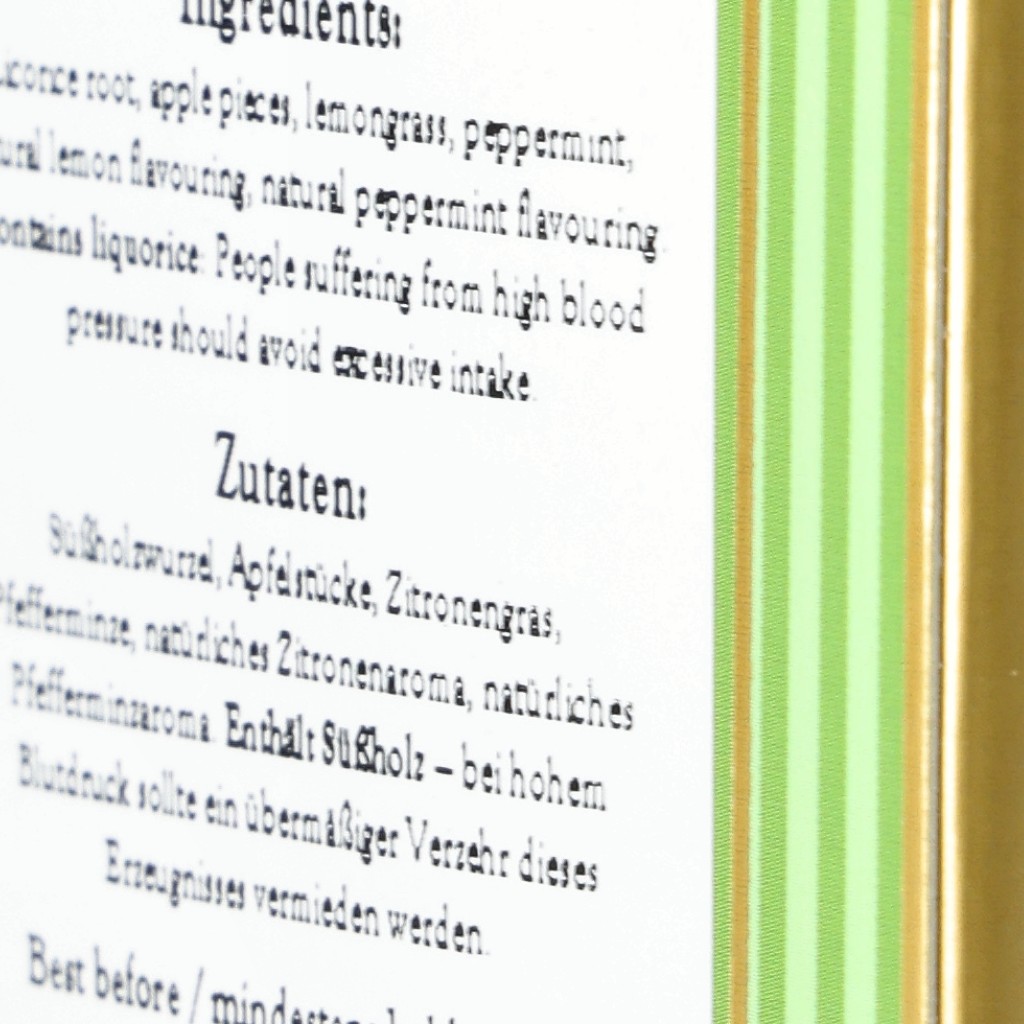 Ingredients:
Licorice root, apple pieces, lemongrass, peppermint,
natural lemon flavouring, natural peppermint flavouring.
Contains liquorice: People suffering from high blood
pressure should avoid excessive intake.
Zutaten:
Süßholzwurzel, Apfelstücke, Zitronengras,
Pfefferminze, natürliches Zitronenaroma, natürliches
Pfefferminzaroma. Enthält Süßholz – bei hohem
Blutdruck sollte ein übermäßiger Verzehr dieses
Erzeugnisses vermieden werden.
Best before / mindestens